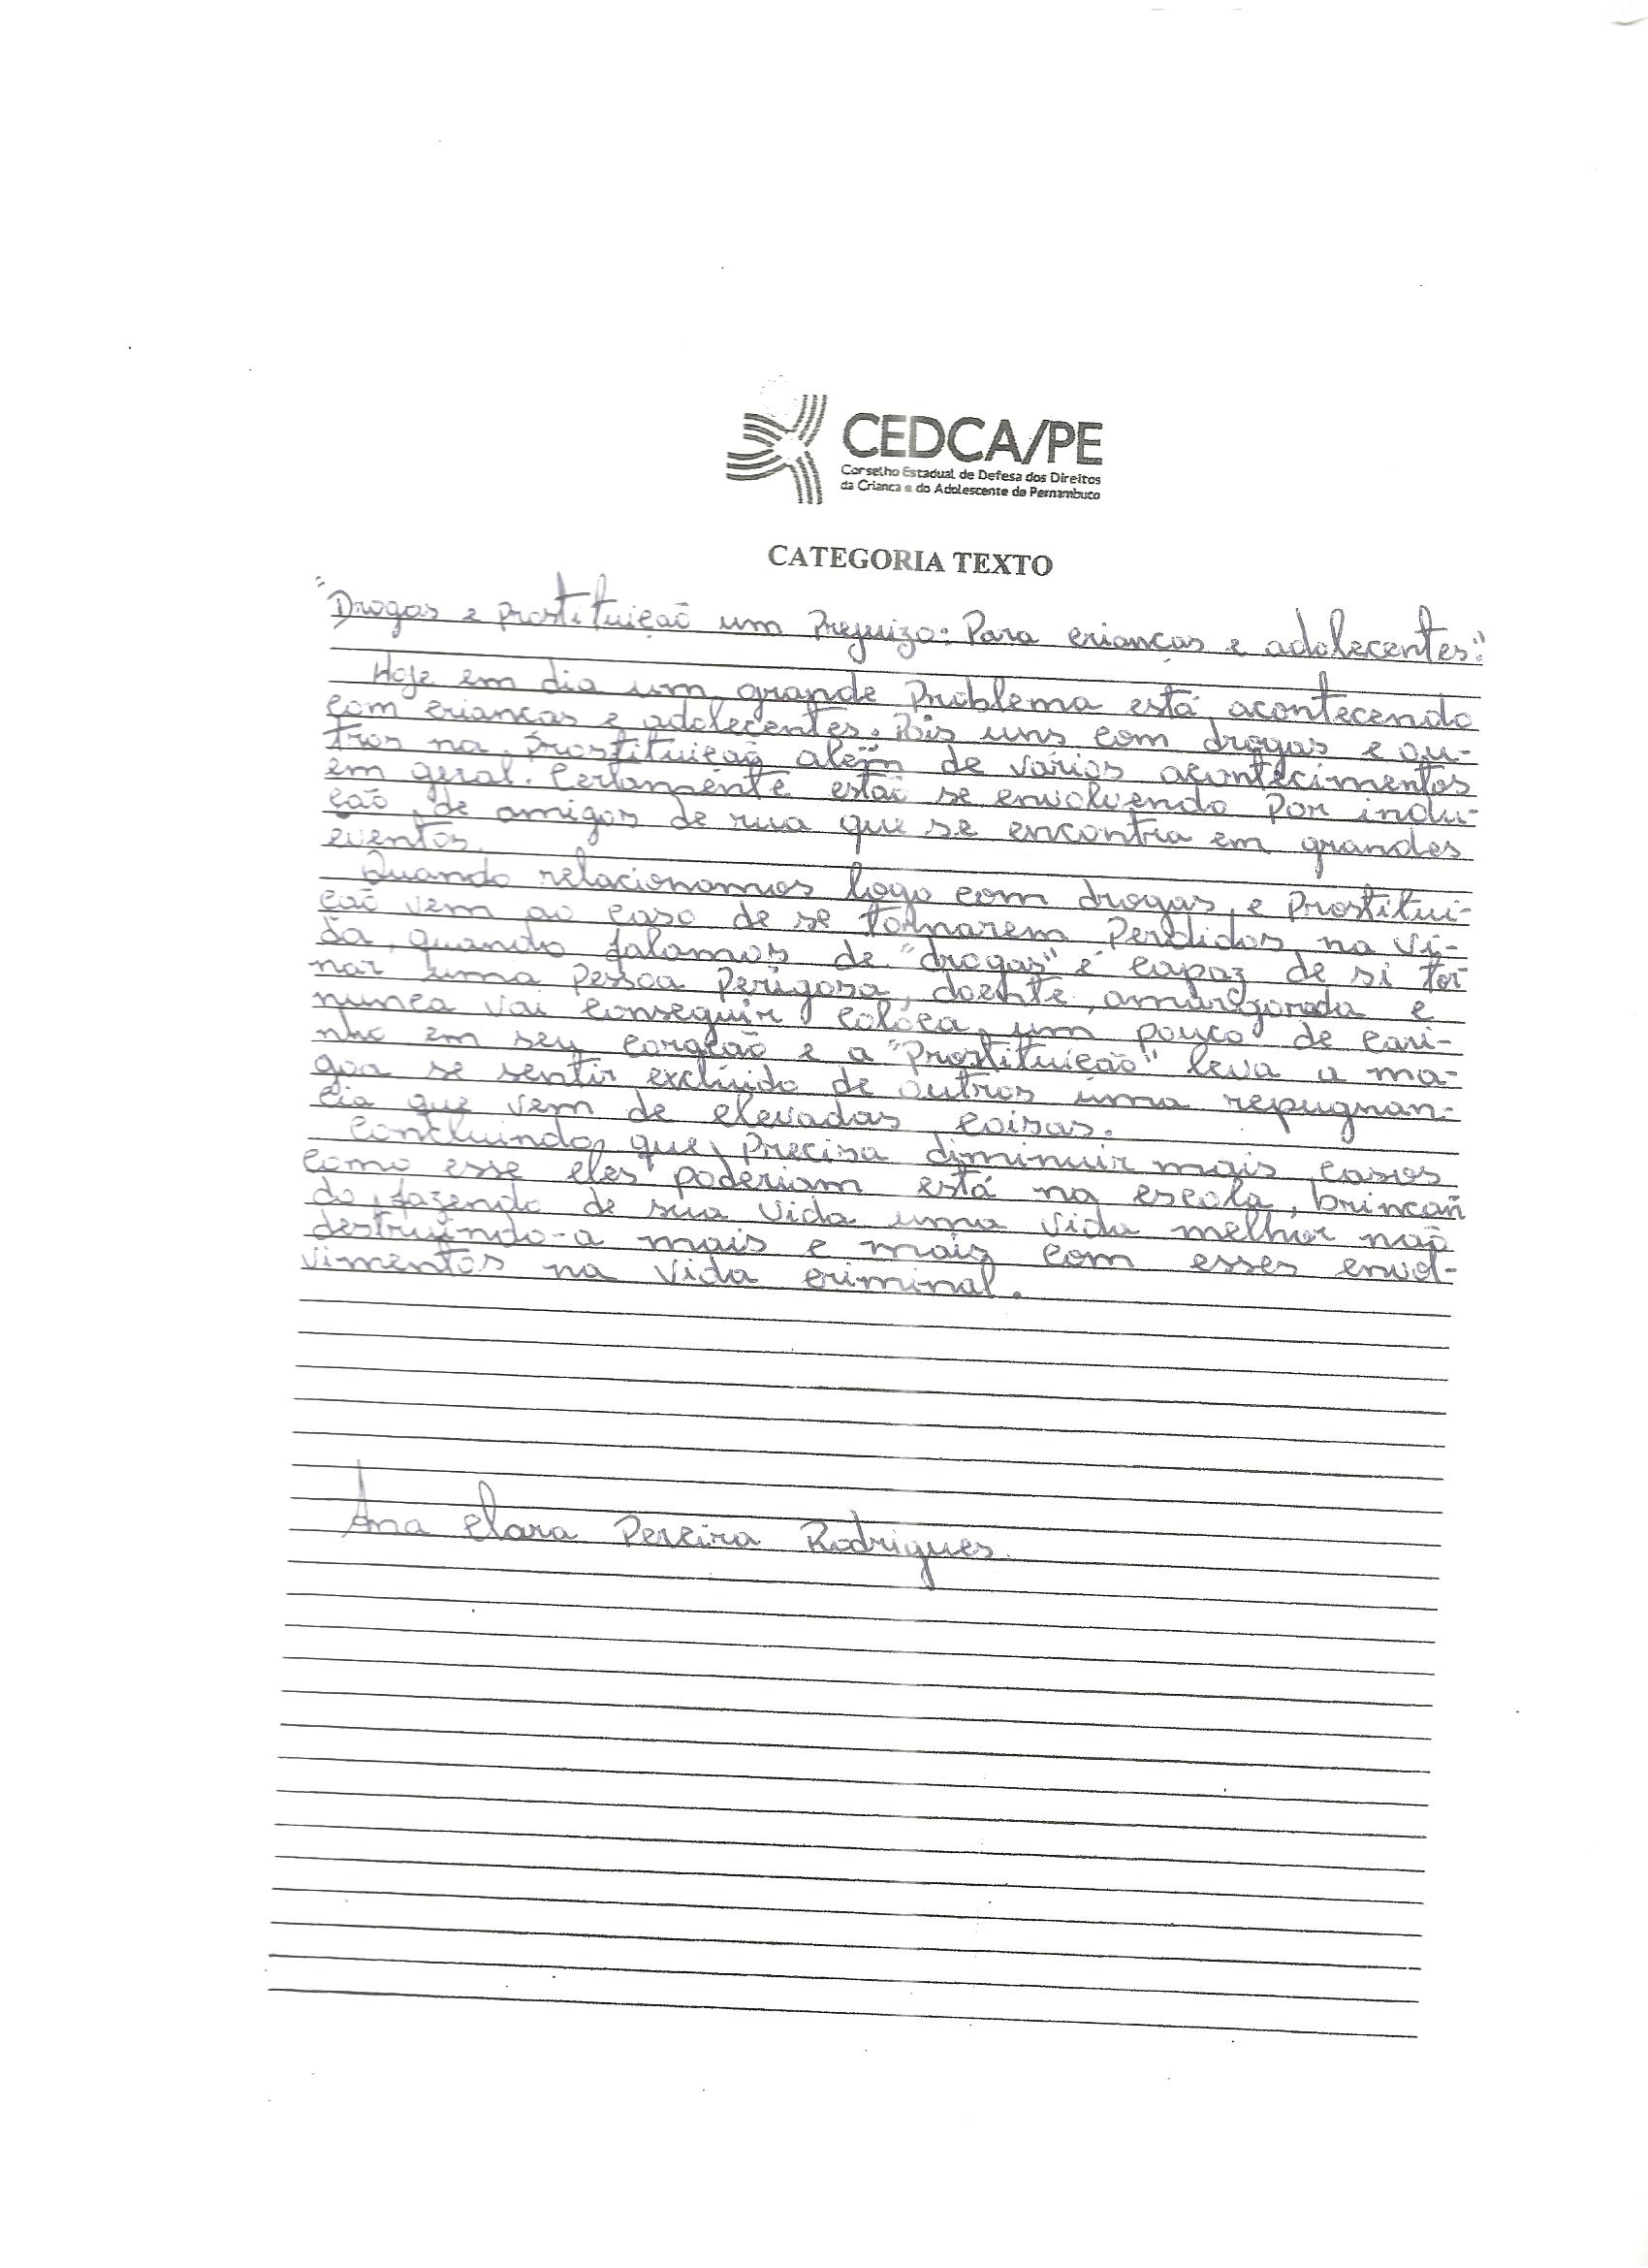 CEDCA/PE
Conselho Estadual de Defesa dos Direitos
da Criança e do Adolescente de Pernambuco
CATEGORIA TEXTO
"Drogas e prostituição um Prejuizo: Para crianças e adolecentes."
Hoje em dia um grande Problema está acontecendo
com crianças e adolecentes. Pois uns com drogas e ou-
tros na Prostituição além de vários acontecimentos
em geral. Certamente estão se envolvendo por indu-
ção de amigos de rua que se encontra em grandes
eventos.
Quando relacionamos logo com drogas e Prostitui-
ção vem ao caso de se tornarem Perdidos na vi-
da, quando falamos de "drogas" é capaz de si tor
nar uma Pessoa Perigosa, doente, amargorada e
nunca vai conseguir coloca um pouco de cari-
nho em seu coração e a "Prostituição" leva a ma-
goa se sentir excluido de outros uma repugnan-
cia que vem de elevadas coisas.
Concluindo que Precisa diminuir mais casos
como esse eles poderiam está na escola, brincan
do, fazendo de sua vida uma vida melhor não
destruindo-a mais e mais com esses envol-
vimentos na vida criminal.
Ana Clara Pereira Rodrigues.